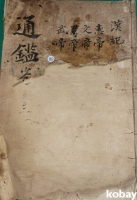 漢紀
惠帝
文帝
景帝
武帝
通鑑
kobay